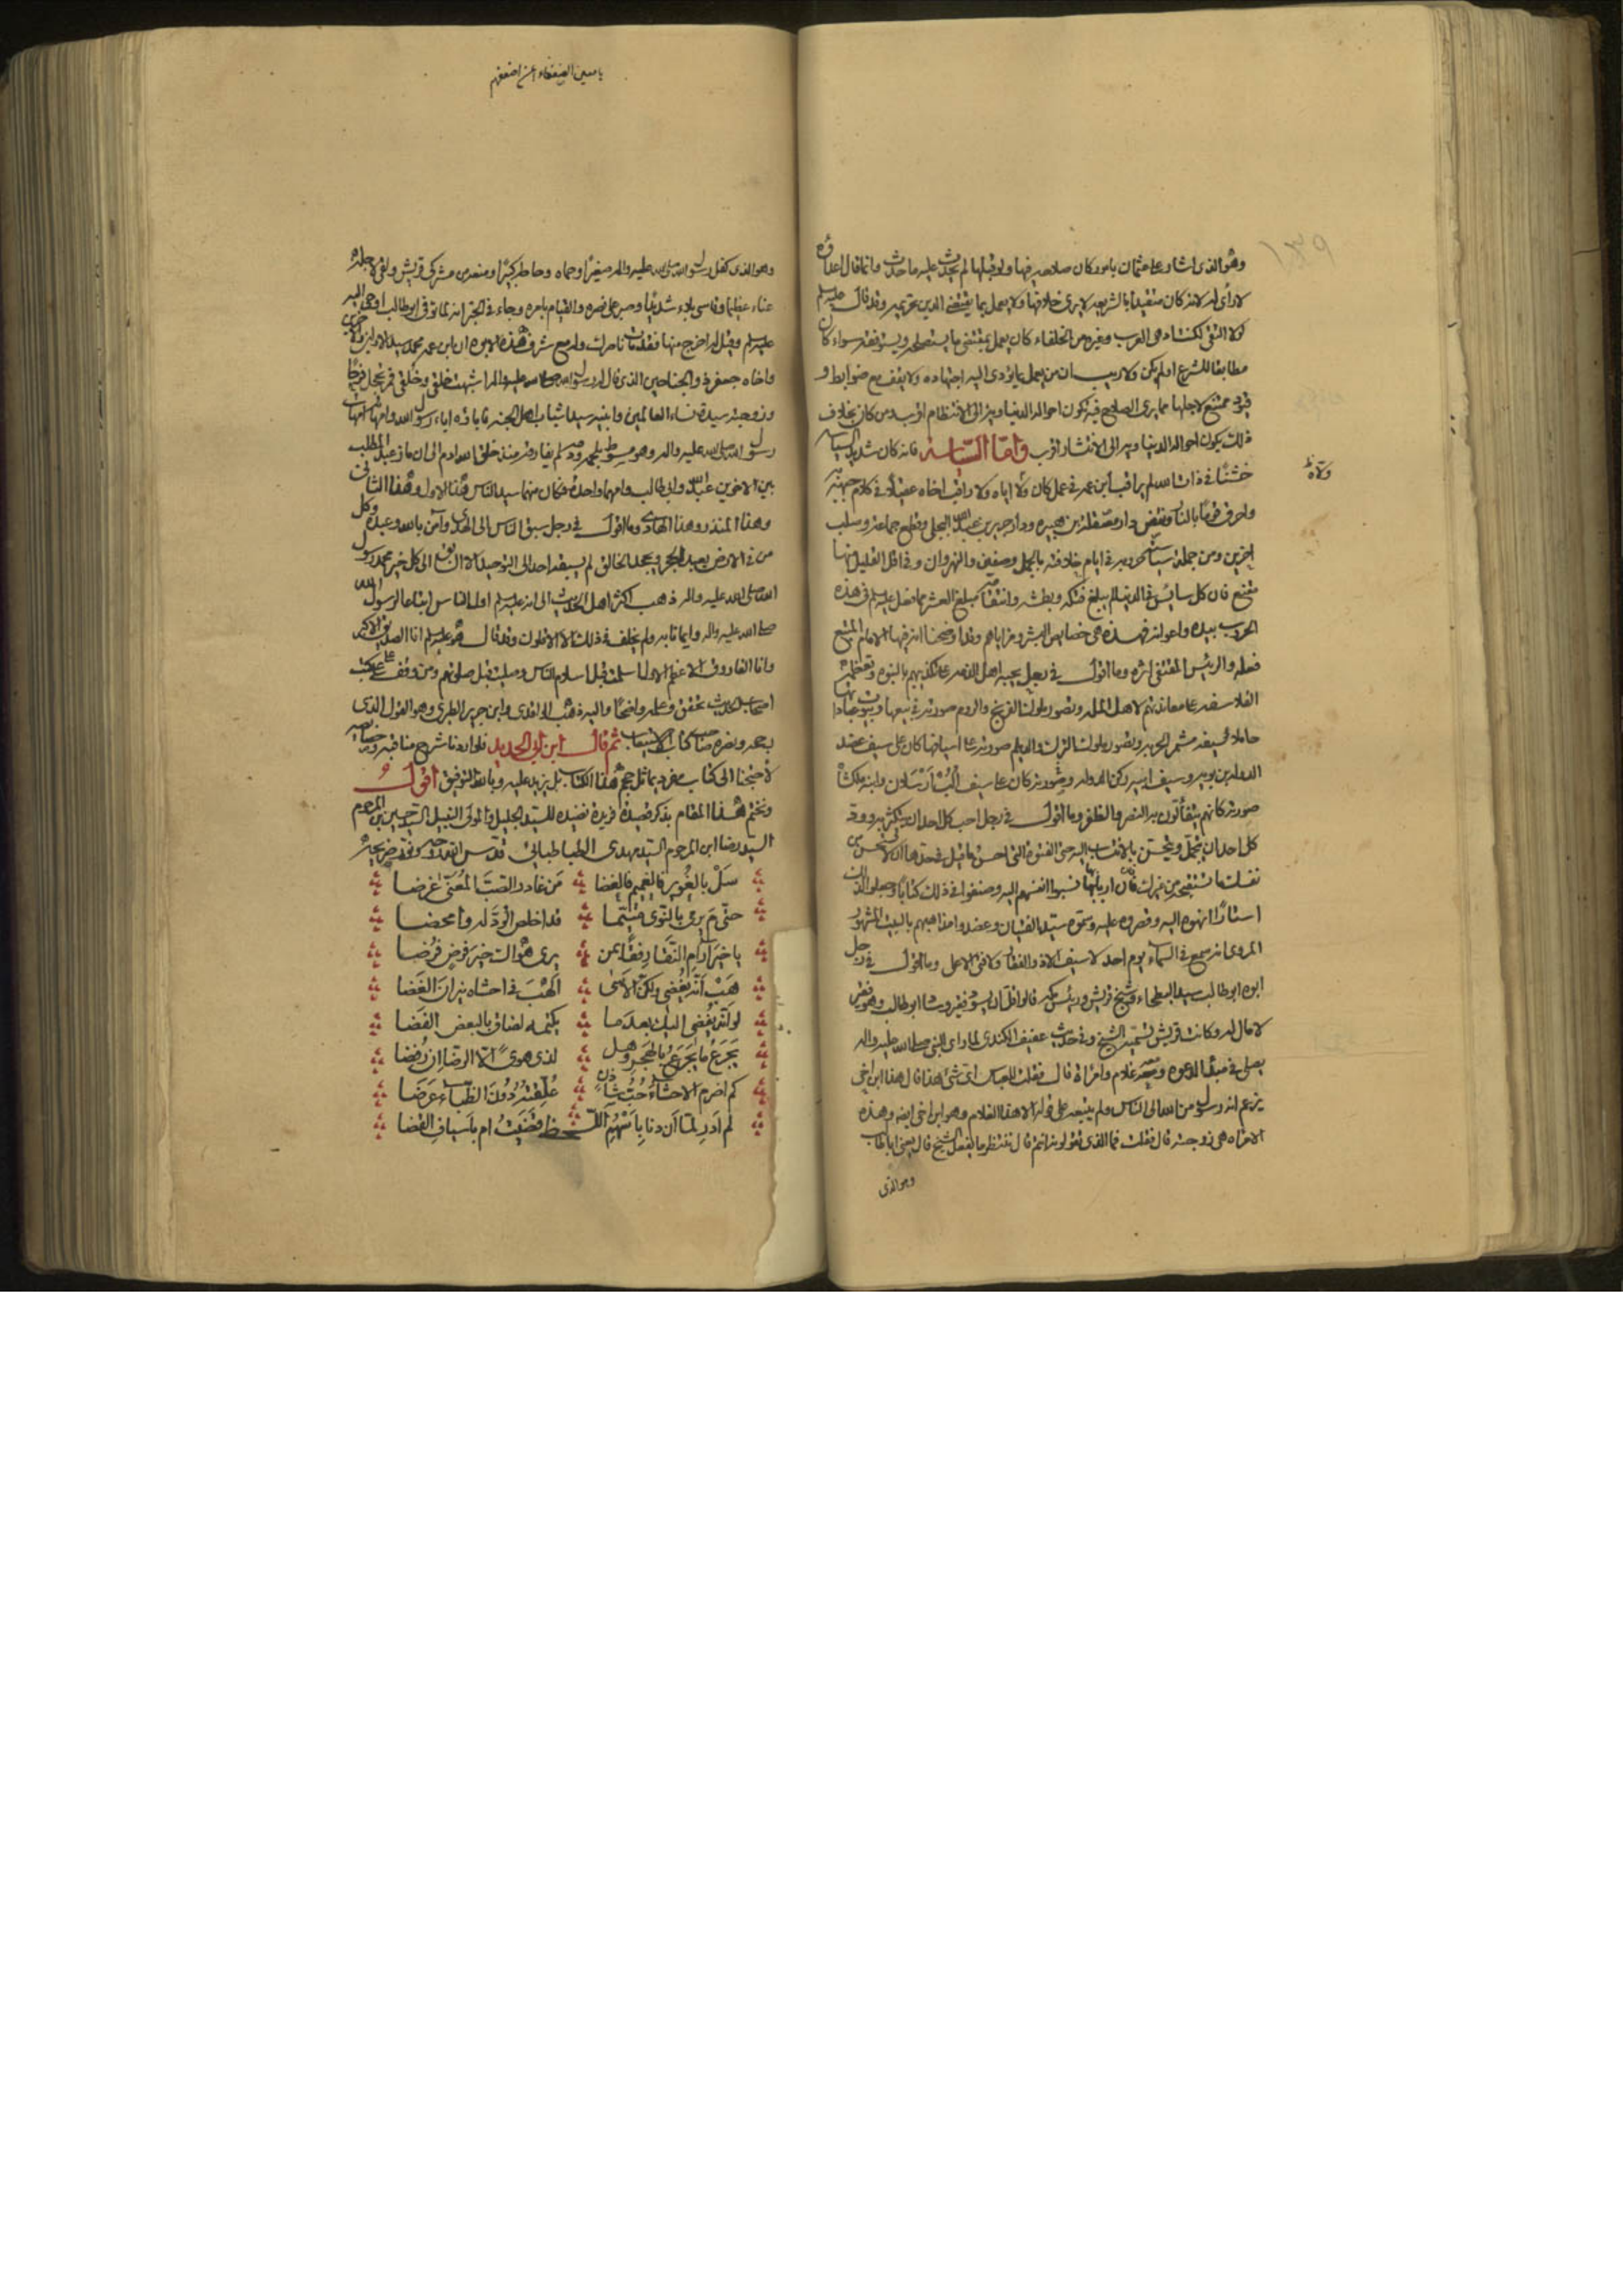 ١٣٩
وهو الذى اشار على عثمان بامور كان صلاحه فيها ولو قبلها لم يحدث عليه ما حدث وانما قال اعداؤه
لا رأى له لانه كان متقيدا بالشريعه لا يرى خلافها ولا يعمل بما يقتضى الدين تحريمه وقد قال عليه السلم
لولا التقى لكنت ادهى العرب وغيره من الخلفاء كان يعمل بمقتضى ما يستصلحه ويستوفقه سواء كان
مطابقا للشرع او لم يكن ولا ريب ان من يعمل بما يؤدى اليه اجتهاده ولا يقف مع ضوابط و
قيود يمتنع لاجلها مما يرى الصلاح فيه تكون احواله الدنياويه الى الانتظام اقرب ومن كان بخلاف
ذلك يكون احواله الدنياويه الى الانتشار اقرب واما السياسة فانه كان شديد السياسه
خشنا فى ذات الله لم يراقب ابن عمه فى عمل كان ولاه اياه ولا راقب اخاه عقيلا فى كلام جبهه به
ولاه
واحرق قوما بالنار ونقض دار مصقلة بن هبيره ودار جرير بن عبد الله البجلى وقطع جماعه وصلب
اخرين ومن جملة سياسته حروبه فى ايام خلافته بالجمل وصفين والنهروان وفى اقل القليل منها
مقنع فان كل سائس فى الدنيا لم يبلغ فتكه وبطشه وانتقامه مبلغ العشر مما فعل عليه السلم فى هذه
الحروب بيده واعوانه فهذه هى خصايص البشر ومزاياهم وقد اوضحنا انه فيها الامام المتبع
فعله والرئيس المقتفى اثره وما اقول فى رجل يحبه اهل الذمه على تكذيبهم بالنبوه وتعظمه
الفلاسفه على معاندتهم لاهل المله وتصور ملوك الفرنج والروم صورته فى بيعها وبيوت عباداتها
حاملا لسيفه مشمر الحربه وتصور ملوك الترك والديلم صورته على اسيافها كان على سيف عضد
الدوله بن بويه وسيف ابيه ركن الدوله وصورته كان على سيف الب ارسلان وابنه ملكشاه
صورته كانهم يتفألون به النصر والظفر وما اقول فى رجل احب كل احد ان يتكثر به وود
كل احد ان يتجمل ويتحسن بالانتساب اليه حتى الفتوة التى احسن ما قيل فى حدها ان لا تستحسن من
نفسك ما تستقبحه من غيرك فان اربابها نسبوا انفسهم اليه وصنفوا فى ذلك كتابا وجعلوا لذلك
اسنادا انهوه اليه وقصروه عليه وسموه سيد الفتيان وعضدوا مذاهبهم بالبيت المشهور
المروى انه سمع فى السماء يوم احد لا سيف الا ذو الفقار ولا فتى الا على وما اقول فى رجل
ابوه ابو طالب سيد البطحاء وشيخ قريش ورئيس مكه قالوا قل ان يسود فقير وساد ابو طالب وهو فقير
لا مال له وكانت قريش تسميه الشيخ وفى حديث عفيف الكندى لما راى النبى صلى الله عليه واله
يصلى فى مبدأ الدعوه ومعه غلام وامراة قال فقلت للعباس اى شئ هذا قال هذا ابن اخى
يزعم انه رسول من الله الى الناس ولم يتبعه على قوله الا هذا الغلام وهو ابن اخى ايضا وهذه
الامراه هى زوجته قال فقلت فما الذى تقولونه انتم قال ننتظر ما يفعل الشيخ قال يعنى ابا طالب
وهو الذى
وهو الذى كفل رسول الله صلى الله عليه واله صغيرا وحماه وحاطه كبيرا ومنعه من مشركى قريش ولقى لاجله
عناء عظيما وقاسى بلاء شديدا وصبر على نصره والقيام بامره وجاء فى الخبر انه لما توفى ابو طالب اوحى اليه
عليه السلم وقيل له اخرج منها فقد مات ناصرك وله مع شرف هذه الابوه ان ابن عمه محمد سيد الاولين والاخرين
واخاه جعفر ذو الجناحين الذى قال له رسول الله صلى الله عليه واله اشبهت خلقى وخلقى فمر يحجل فرحا
وزوجته سيدة نساء العالمين وابنيه سيدا شباب اهل الجنه فاباؤه اباء رسول الله وامهاته امهات
رسول الله صلى الله عليه واله وهو مسوط بلحمه ودمه لم يفارقه منذ خلق الله ادم الى ان ماز عبد المطلب
بين الاخوين عبد الله وابى طالب وامهما واحدة فكان منهما سيد الناس هذا الاول وهذا الثانى
وهذا المنذر وهذا الهادى وما اقول فى رجل سبق الناس الى الهدى وآمن بالله وعبده وكل
من فى الارض يعبد الحجر ويجحد الخالق لم يسبقه احد الى التوحيد الا السابق الى كل خير محمد رسول الله
صلى الله عليه واله ذهب اكثر اهل الحديث الى انه عليه السلم اول الناس اتباعا لرسول الله
صلى الله عليه واله وايمانا به ولم يخالف فى ذلك الا الاقلون وقد قال هو عليه السلم انا الصديق الاكبر
وانا الفاروق الاعظم الاول اسلمت قبل اسلام الناس وصليت قبل صلوتهم ومن وقف على كتب
اصحاب الحديث تحقق وعلمه واضحا واليه ذهب الواقدى وابن جرير الطبرى وهو القول الذى
رجحه ونصره صاحب كتاب الاستيعاب ثم قال ابن ابى الحديد فلو اردنا شرح مناقبه وخصائصه
لاحتجنا الى كتاب مفرد يماثل حجم هذا الكتاب بل يزيد عليه وبالله التوفيق اقول
ونختم هذا المقام بذكر قصيدة فريدة نضيده للسيد الجليل والمولى النبيل السيد حسين بن المرحوم
السيد رضا ابن المرحوم السيد مهدى الطباطبائى قدس الله روحه ونور ضريحه
سل بالغوير فالغميم فالغضا من غادر الصب المعنى غرضا
حتى م يرمى بالنوى متيما قد اخلص الود له وامحضا
يا خير آرام النقا رفقا بمن يرى هواك خير فرض فرضا
هب انه يغضى ولكن الاسى الهب فى احشاه نيران الغضا
لو انه يفضى اليك بعد ما يكتمه لضاق بالبعض الفضا
يجرع ما يجرع بالهجر وهل لذى هوى الا الرضا ان رفضا
كم اضرم الاحشاء حب شادن علقته دون الظباء عرضا
لم ادر لما ان دنا باسهم اللحظ قضيت ام باسياف القضا